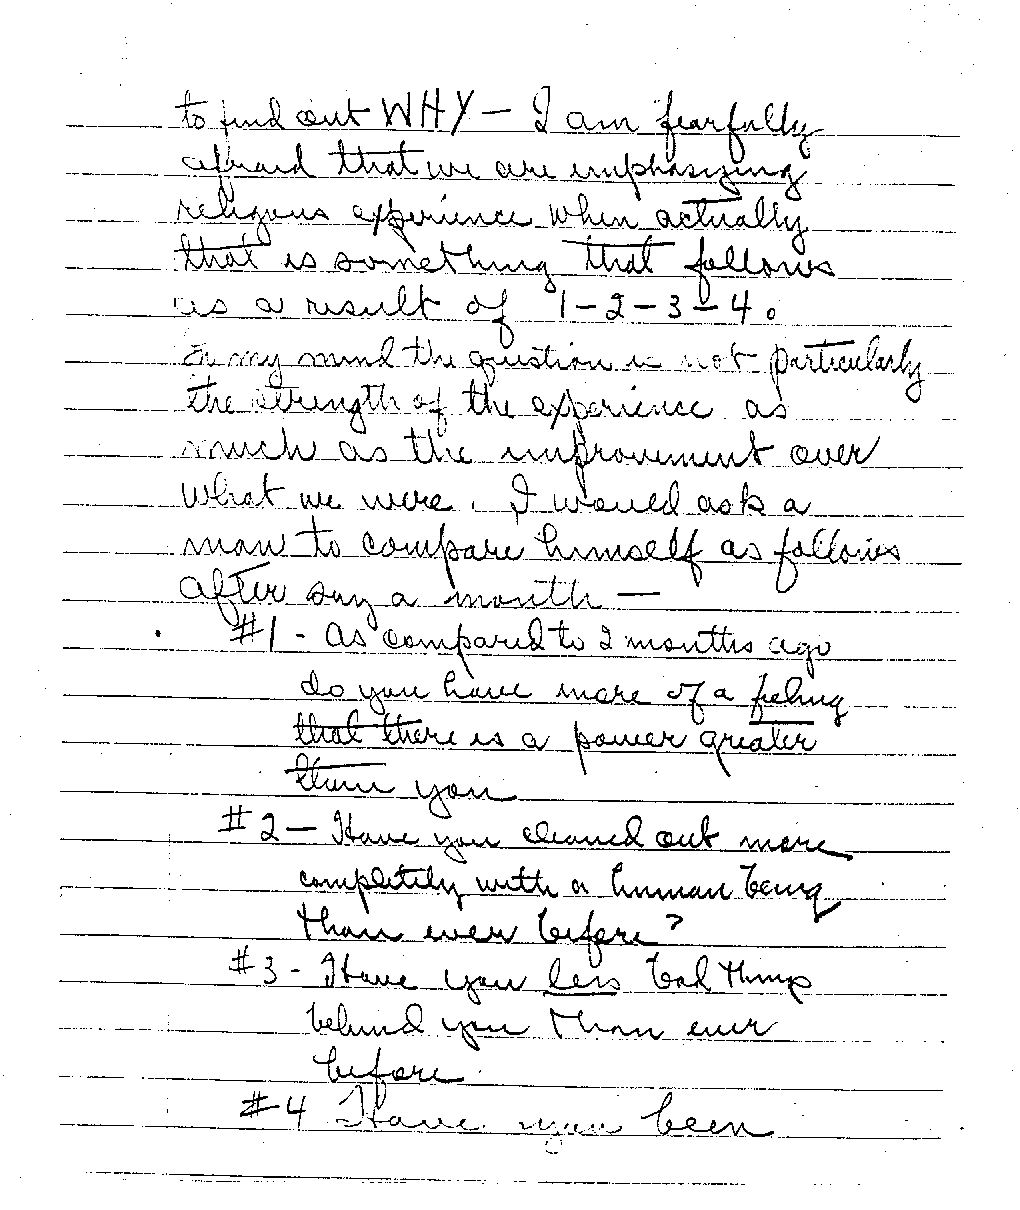 to find out WHY — I am fearfully
afraid that we are emphasizing
religious experience when actually
that is something that follows
as a result of 1-2-3-4.
In my mind the question is not particularly
the strength of the experience as
much as the improvement over
what we were. I would ask a
man to compare himself as follows
after say a month —
#1 - As compared to 2 months ago
do you have more of a feeling
that there is a power greater
than you
#2 — Have you cleaned out more
completely with a human being
than ever before?
#3 - Have you less bad things
behind you than ever
before
#4 Have you been